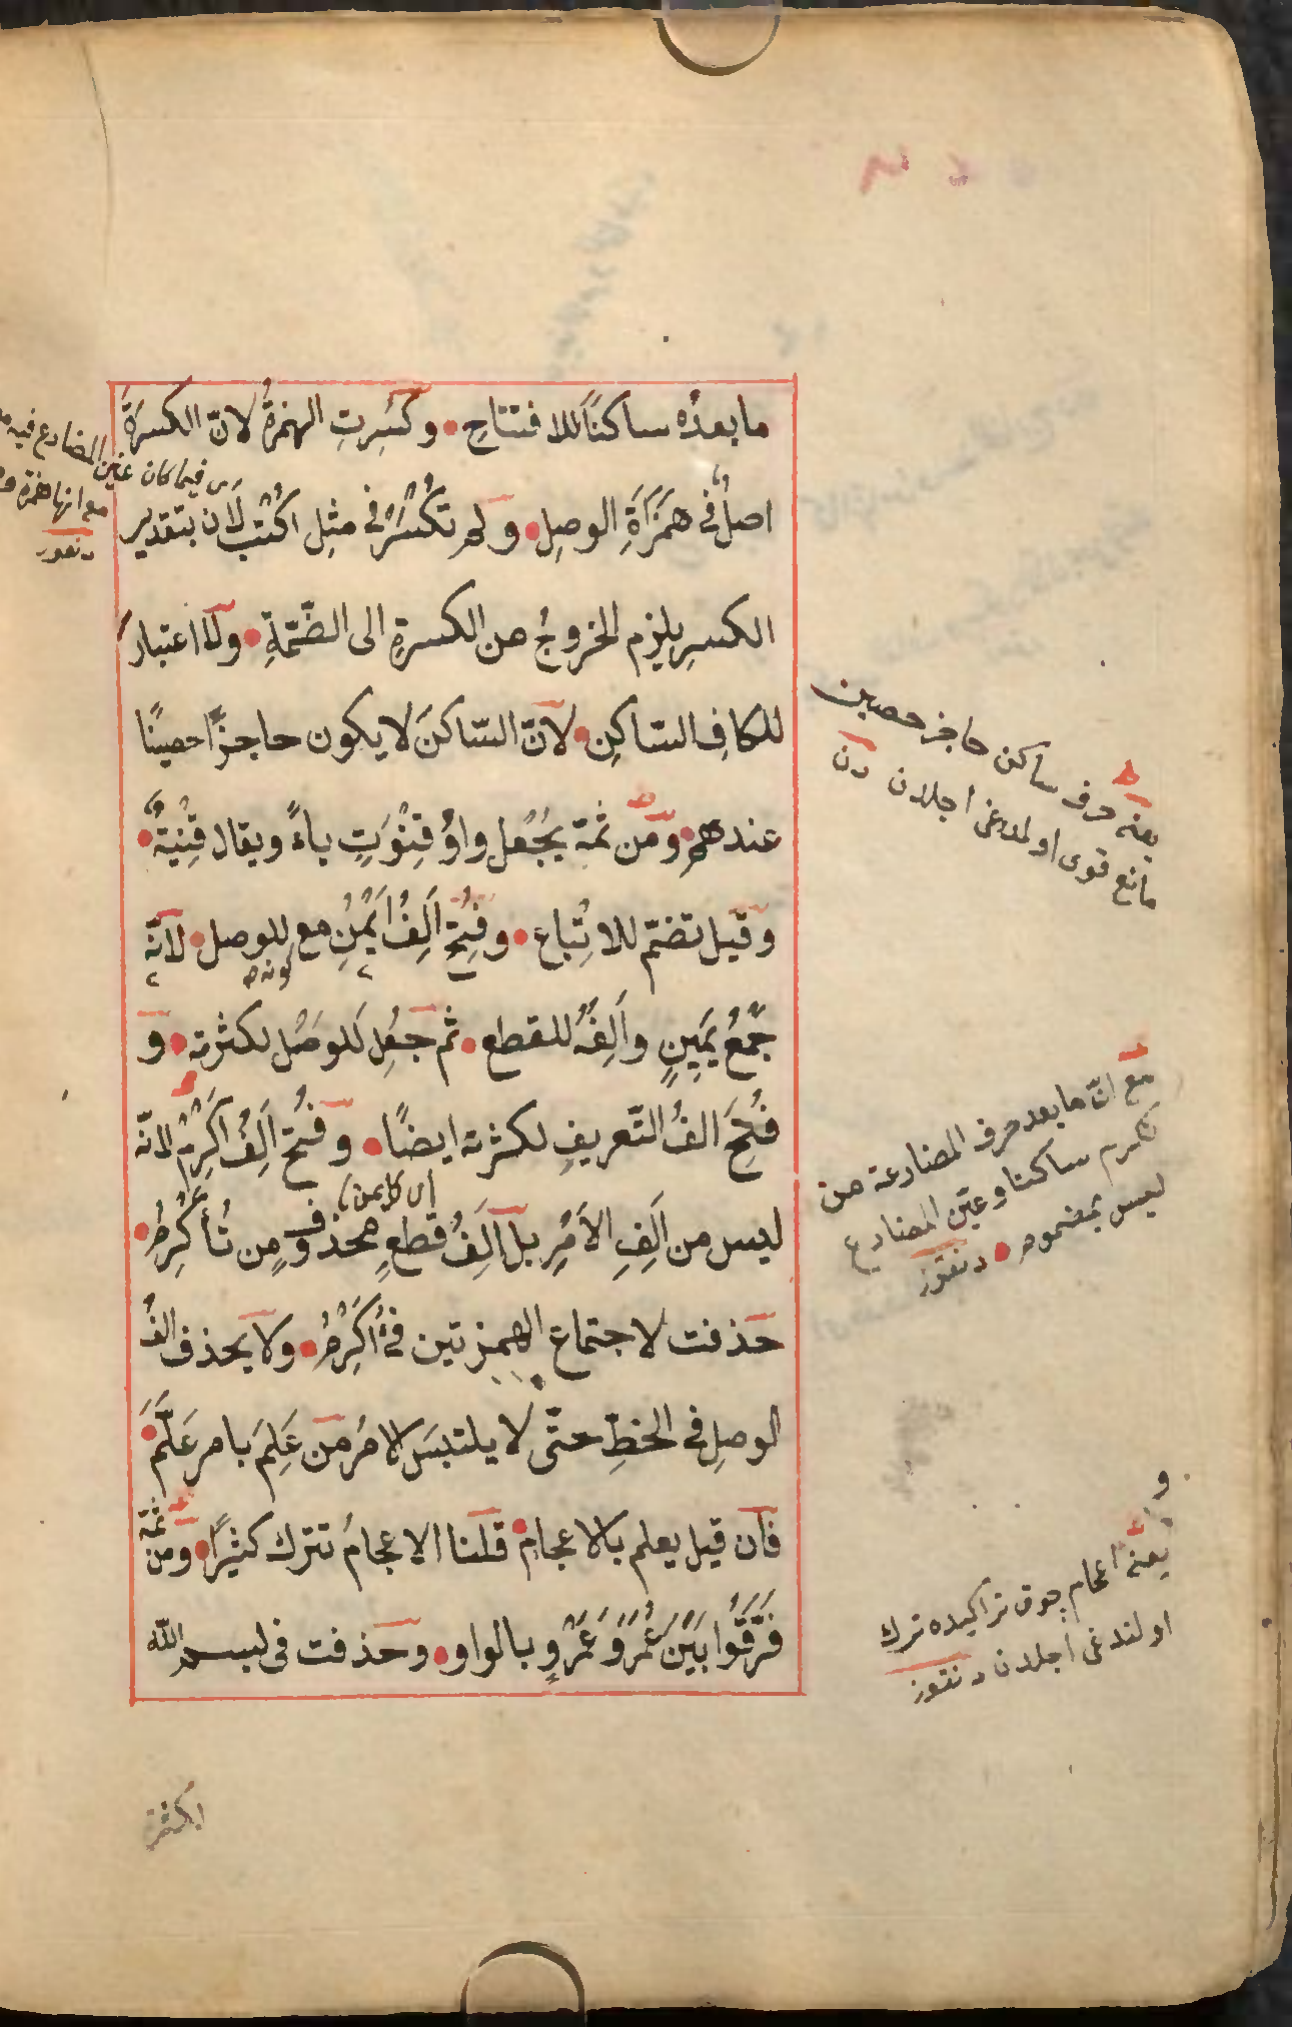 ما بعدُه ساكناً للافتتاحِ • وكُسِرتِ الهمزةُ لانّ الكسرَةَ
اصلٌ فى همَزَةِ الوصِلِ • ولم تُكْسَرْ فى مثِل اُكْتُبْ لاَن بتقدير
الكسرِ يلزم الخروجُ من الكسرةِ الى الضّمّةِ • ولا اعتبار
للكافِ السّاكِنِ • لانّ السّاكنَ لا يكون حاجزًا حصينًا
عندهم • ومن ثمة يجُعَل واوُ قِنْوَتٍ ياءً ويقال قِنْيَةٌ •
وقيل تضمّ للاتِباع • وفُتِحَ اَلِفُ اَيْمُنِ مع كونه للوصل • لانّه
جَمْعُ يَمِينٍ واَلِفُهُ للقطع • ثم جعُلِ للوصْل لكثرته • و
فُتِحَ الفُ التّعريفِ لكثرته ايضًا • وفُتحَ اَلِفُ اَكْرِمْ لانّه
ليس من اَلِفِ الاَمْرِ بل اَلِفُ قطعٍ محذوفٍ مِن تُأَكْرِمُ •
حذفت لاجتماع الهمزتين فى أُأَكْرِمُ • ولا يحذف الفُ
الوصِلِ فى الخطِّ حتّى لا يلتبسَ الامرُ من عَلِمَ بامر عَلَّمَ •
فان قيل يعلم بالاعجام • قلنا الاعجامُ تترك كثيرًا • ومن ثمّة
فَرَّقُوا بَيْنَ عُمَرَ وَ عَمْرٍو بالواو • وحذفت فى بسم الله
لكثرة
فيما كان عين المضارع فيه
مع انها همزة
دنقوز
يعنى حرف ساكن حاجز حصين
مانع قوى اولمدغى اجلدن دن
مع انّ ما بعد حرف المضارعة من
تكرم ساكنا وعين المضارع
ليس بمضموم • دنقوز
اى كلمن
و
يعنى اعجام چوق تراكيده ترك
اولندغى اجلدن دنقوز